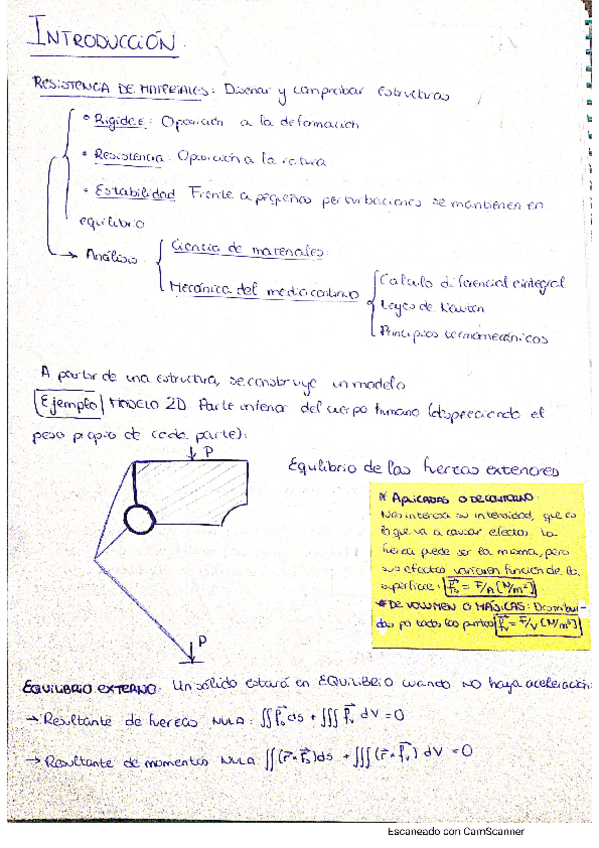 INTRODUCCIÓN.
RESISTENCIA DE MATERIALES: Diseñar y comprobar estructuras
• Rigidez: Oposición a la deformación
• Resistencia: Oposición a la rotura
• Estabilidad Frente a pequeñas perturbaciones se mantienen en
equilibrio
→ Análisis
Ciencia de materiales:
Mecánica del medio continuo
Calculo diferencial e integral
Leyes de Newton
Principios termomecánicos
A partir de una estructura, se construye un modelo
Ejemplo MODELO 2D Parte inferior del cuerpo humano (despreciando el
peso propio de cada parte):
↓ P
Equilibrio de las fuerzas exteriores
* APLICADAS O DE CONTORNO:
Nos interesa su intensidad, que es
lo que va a causar efectos. La
fuerza puede ser la misma, pero
sus efectos varían en función de la
superficie: f⃗s = F/A [N/m²]
* DE VOLUMEN O MÁSICAS: Distribui-
das por todos los puntos f⃗v = F/V [N/m³]
↓ P
EQUILIBRIO EXTERNO: Un sólido estará en EQUILIBRIO cuando NO haya aceleración:
→ Resultante de fuerzas NULA: ∬ f⃗s ds + ∭ f⃗v dV = 0
→ Resultante de momentos NULA ∬(r⃗ x f⃗s)ds + ∭(r⃗ x f⃗v) dV = 0
Escaneado con CamScanner